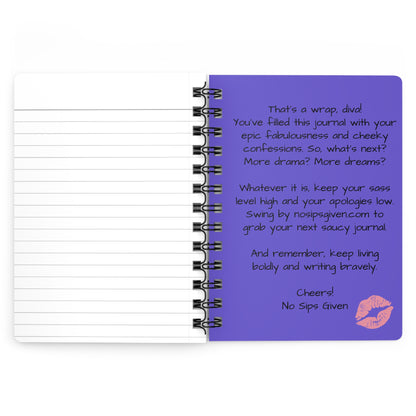 That's a wrap, diva!
You've filled this journal with your
epic fabulousness and cheeky
confessions. So, what's next?
More drama? More dreams?
Whatever it is, keep your sass
level high and your apologies low.
Swing by nosipsgiven.com to
grab your next saucy journal.
And remember, keep living
boldly and writing bravely.
Cheers!
No Sips Given